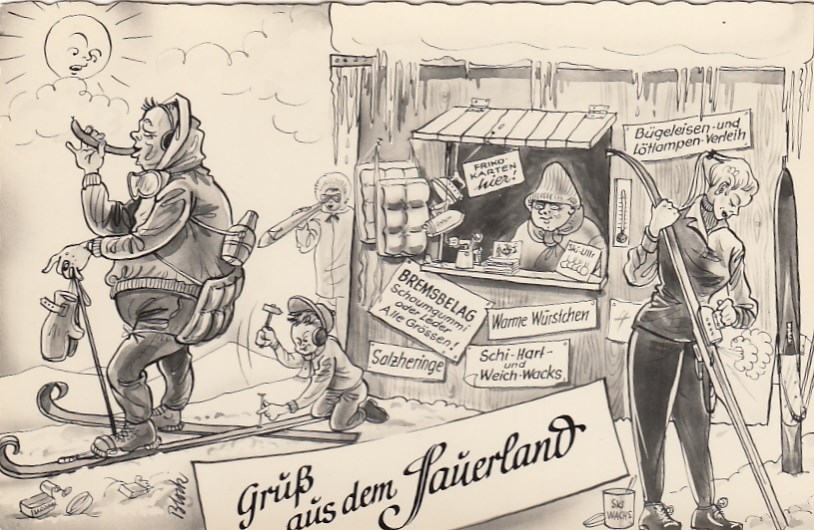 Bügeleisen-und
Lötlampen-Verleih
FRIKO-
KARTEN
hier!
BREMSBELAG
Schaumgummi
oder Leder
Alle Grössen!
Warme Würstchen
Salzheringe
Schi-Hart-
und
Weich-Wachs
Gruß
aus dem Sauerland
SKI
WACHS